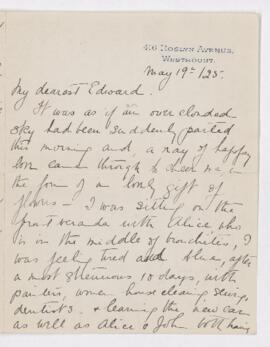 416 ROSLYN AVENUE,
WESTMOUNT.
May 19th/25.
My dearest Edward.
It was as if an over clouded
sky had been suddenly parted
this morning and, a ray of happy
love came through to cheer me, in
the form of a lovely gift of
flowers – I was sitting on the
front veranda with Alice who
is in the middle of bronchitis, I
was feeling tired and blue, after
a most strenuous 10 days, with
painters, women house cleaning,
dentists. & learning the new car
as well as Alice & John both having